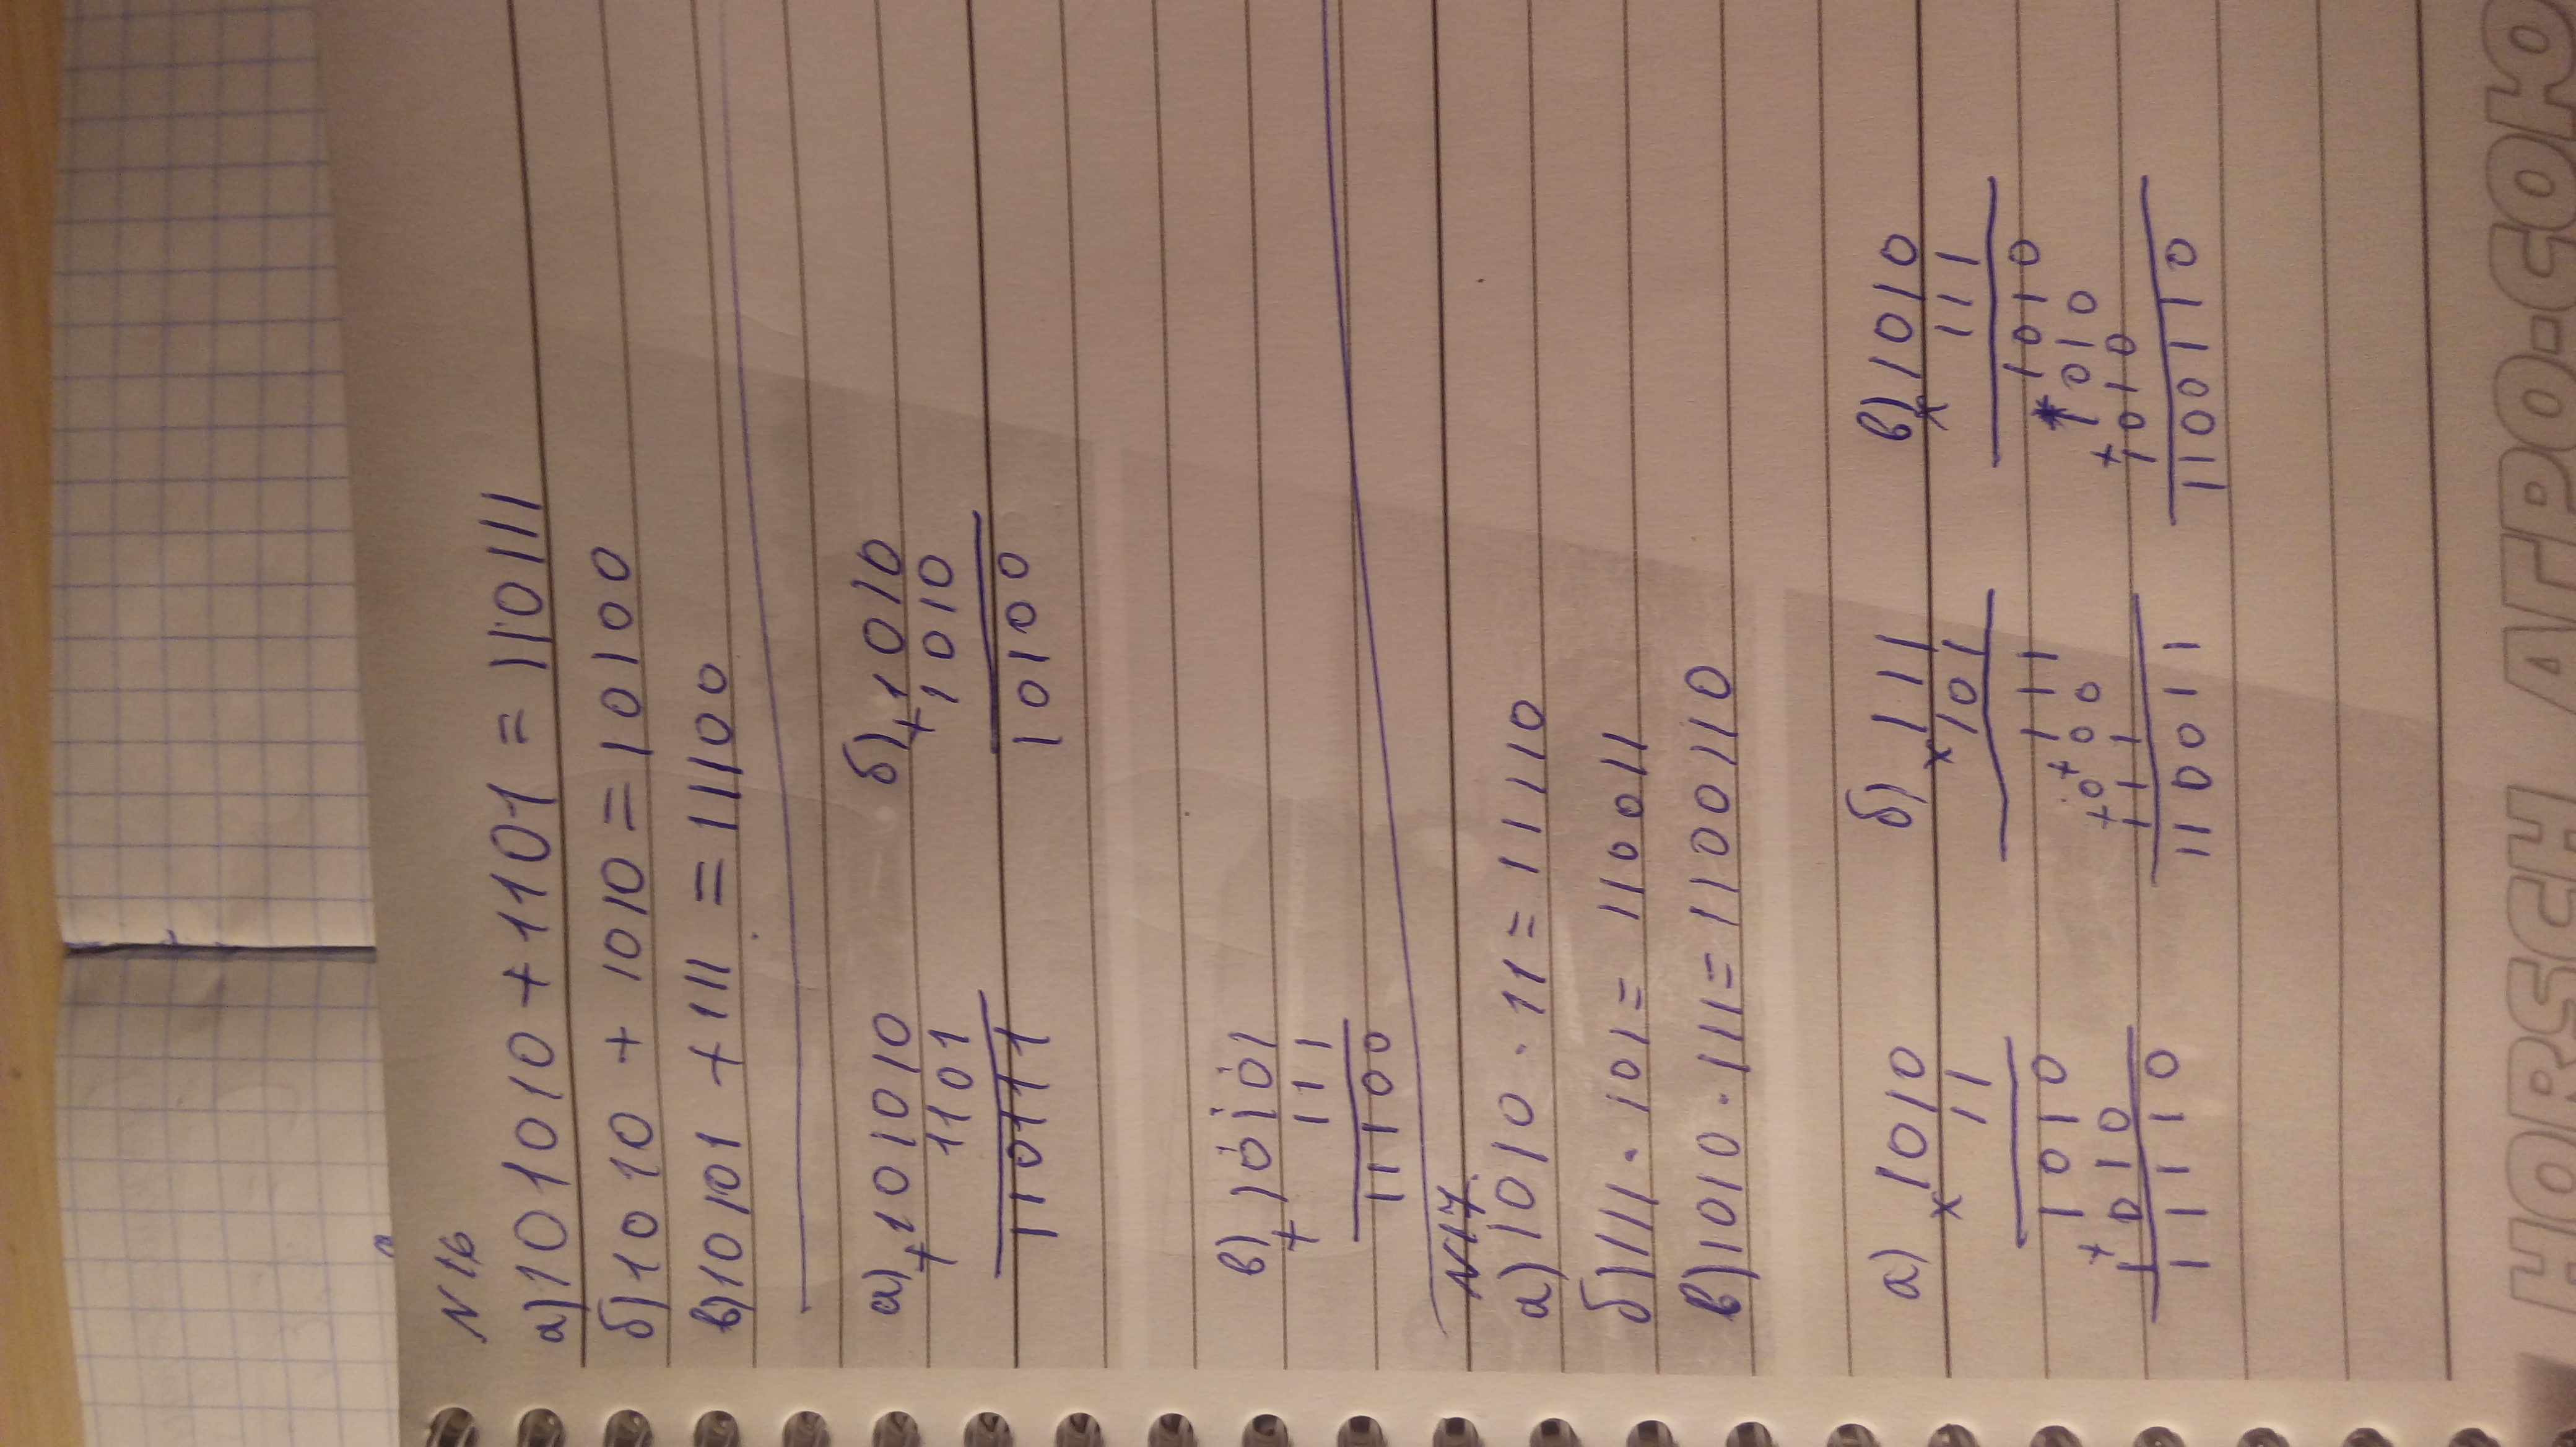 N 16
а) 101010 + 1101 = 110111
б) 1010 + 1010 = 10100
в) 10101 + 111 = 11100
а) 101010
+ 1101
110111
б) 1010
+ 1010
10100
в) 10101
+ 111
11100
N 17.
а) 1010 · 11 = 11110
б) 111 · 101 = 110011
в) 1010 · 111 = 1100110
а) 1010
× 11
1010
+ 1010
11110
б) 111
× 101
111
+ 000
+ 111
110011
в) 1010
× 111
1010
1010
+ 1010
1100110
HORSCH АГРО-СОЮ